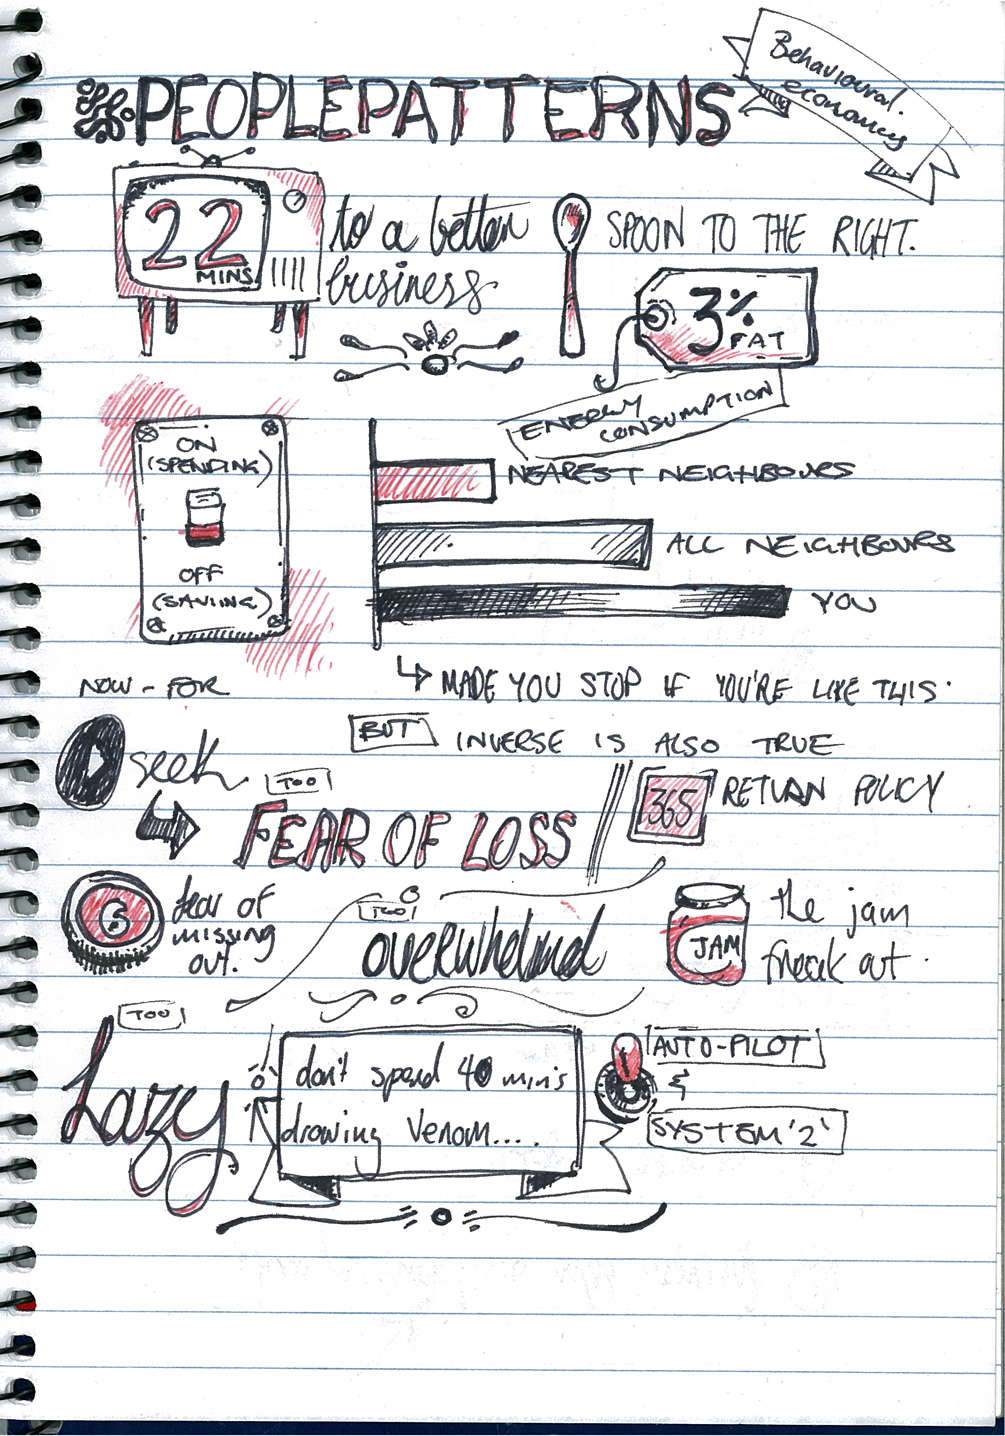 PEOPLEPATTERNS
Behavioural
economics
22
MINS
to a better
business
SPOON TO THE RIGHT.
3%
FAT
ENERGY
CONSUMPTION
ON
(SPENDING)
OFF
(SAVIING)
NEAREST NEIGHBOURS
ALL NEIGHBOURS
YOU
NOW - FOR
MADE YOU STOP IF YOU'RE LIKE THIS.
BUT INVERSE IS ALSO TRUE
seek
TOO
FEAR OF LOSS
365
RETURN POLICY
fear of
missing
out.
TOO
overwhelmd
JAM
the jam
freak out.
TOO
Lazy
don't spend 40 min's
drawing Venom....
AUTO-PILOT
&
SYSTEM '2'